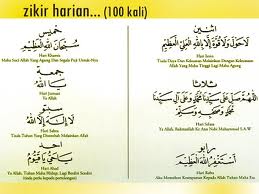 zikir harian... (100 kali)
اثنين
لَا حَوْلَ وَلَا قُوَّةَ إِلَّا بِاللهِ الْعَلِيِّ الْعَظِيْمِ
Hari Isnin
Tiada Daya Dan Kekuatan Melainkan Dengan Kekuatan
Allah Yang Maha Tinggi Lagi Maha Agung
ثلاثا
اللهم صل على سيدنا محمد وعلى آل سيدنا
محمد
Hari Selasa
Ya Allah, Rahmatilah Ke Atas Nabi Muhammad S.A.W
رابو
أستغفر الله العظيم
Hari Rabu
Aku Memohon Keampunan Kepada Allah Tuhan Maha Esa.
خميس
سُبْحَانَ اللهِ الْعَظِيْمِ
Hari Khamis
Maha Suci Allah Yang Agung Dan Segala Puji Untuk-Nya
جمعة
يَا اَلله
Hari Jumaat
Ya Allah
سبتو
لَا إِلَهَ إِلَّا اللهُ
Hari Sabtu
Tiada Tuhan Yang Disembah Melainkan Allah
احد
يَا حَيُّ يَا قَيُّوْمُ
Hari Ahad
Ya Allah, Tuhan Maha Hidup, Lagi Berdiri Sendiri
(tiada perlu kepada pertolongan)